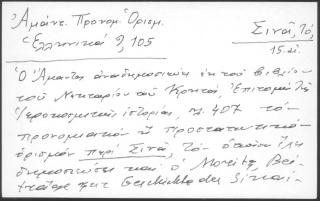 Ἀμάντ. Προνομ. Ὁρισμ. Σινᾶ, Τό,
Ἑλληνικά 9, 105 15. αἰ.
Ὁ Ἄμαντος ἀναδημοσιεύει ἐκ τοῦ βιβλίου
τοῦ Νεκταρίου τοῦ Κρητός, Ἐπιτομή τῆς
Ἱεροκοσμικῆς ἱστορίας, 407 τόν
προνομιακόν ἤ προστατευτικόν
ὁρισμόν περί Σινᾶ, τόν ὁποῖον
δημοσιεύει καί ὁ Moritz, Bei-
träge zur Geschichte des Sinai-